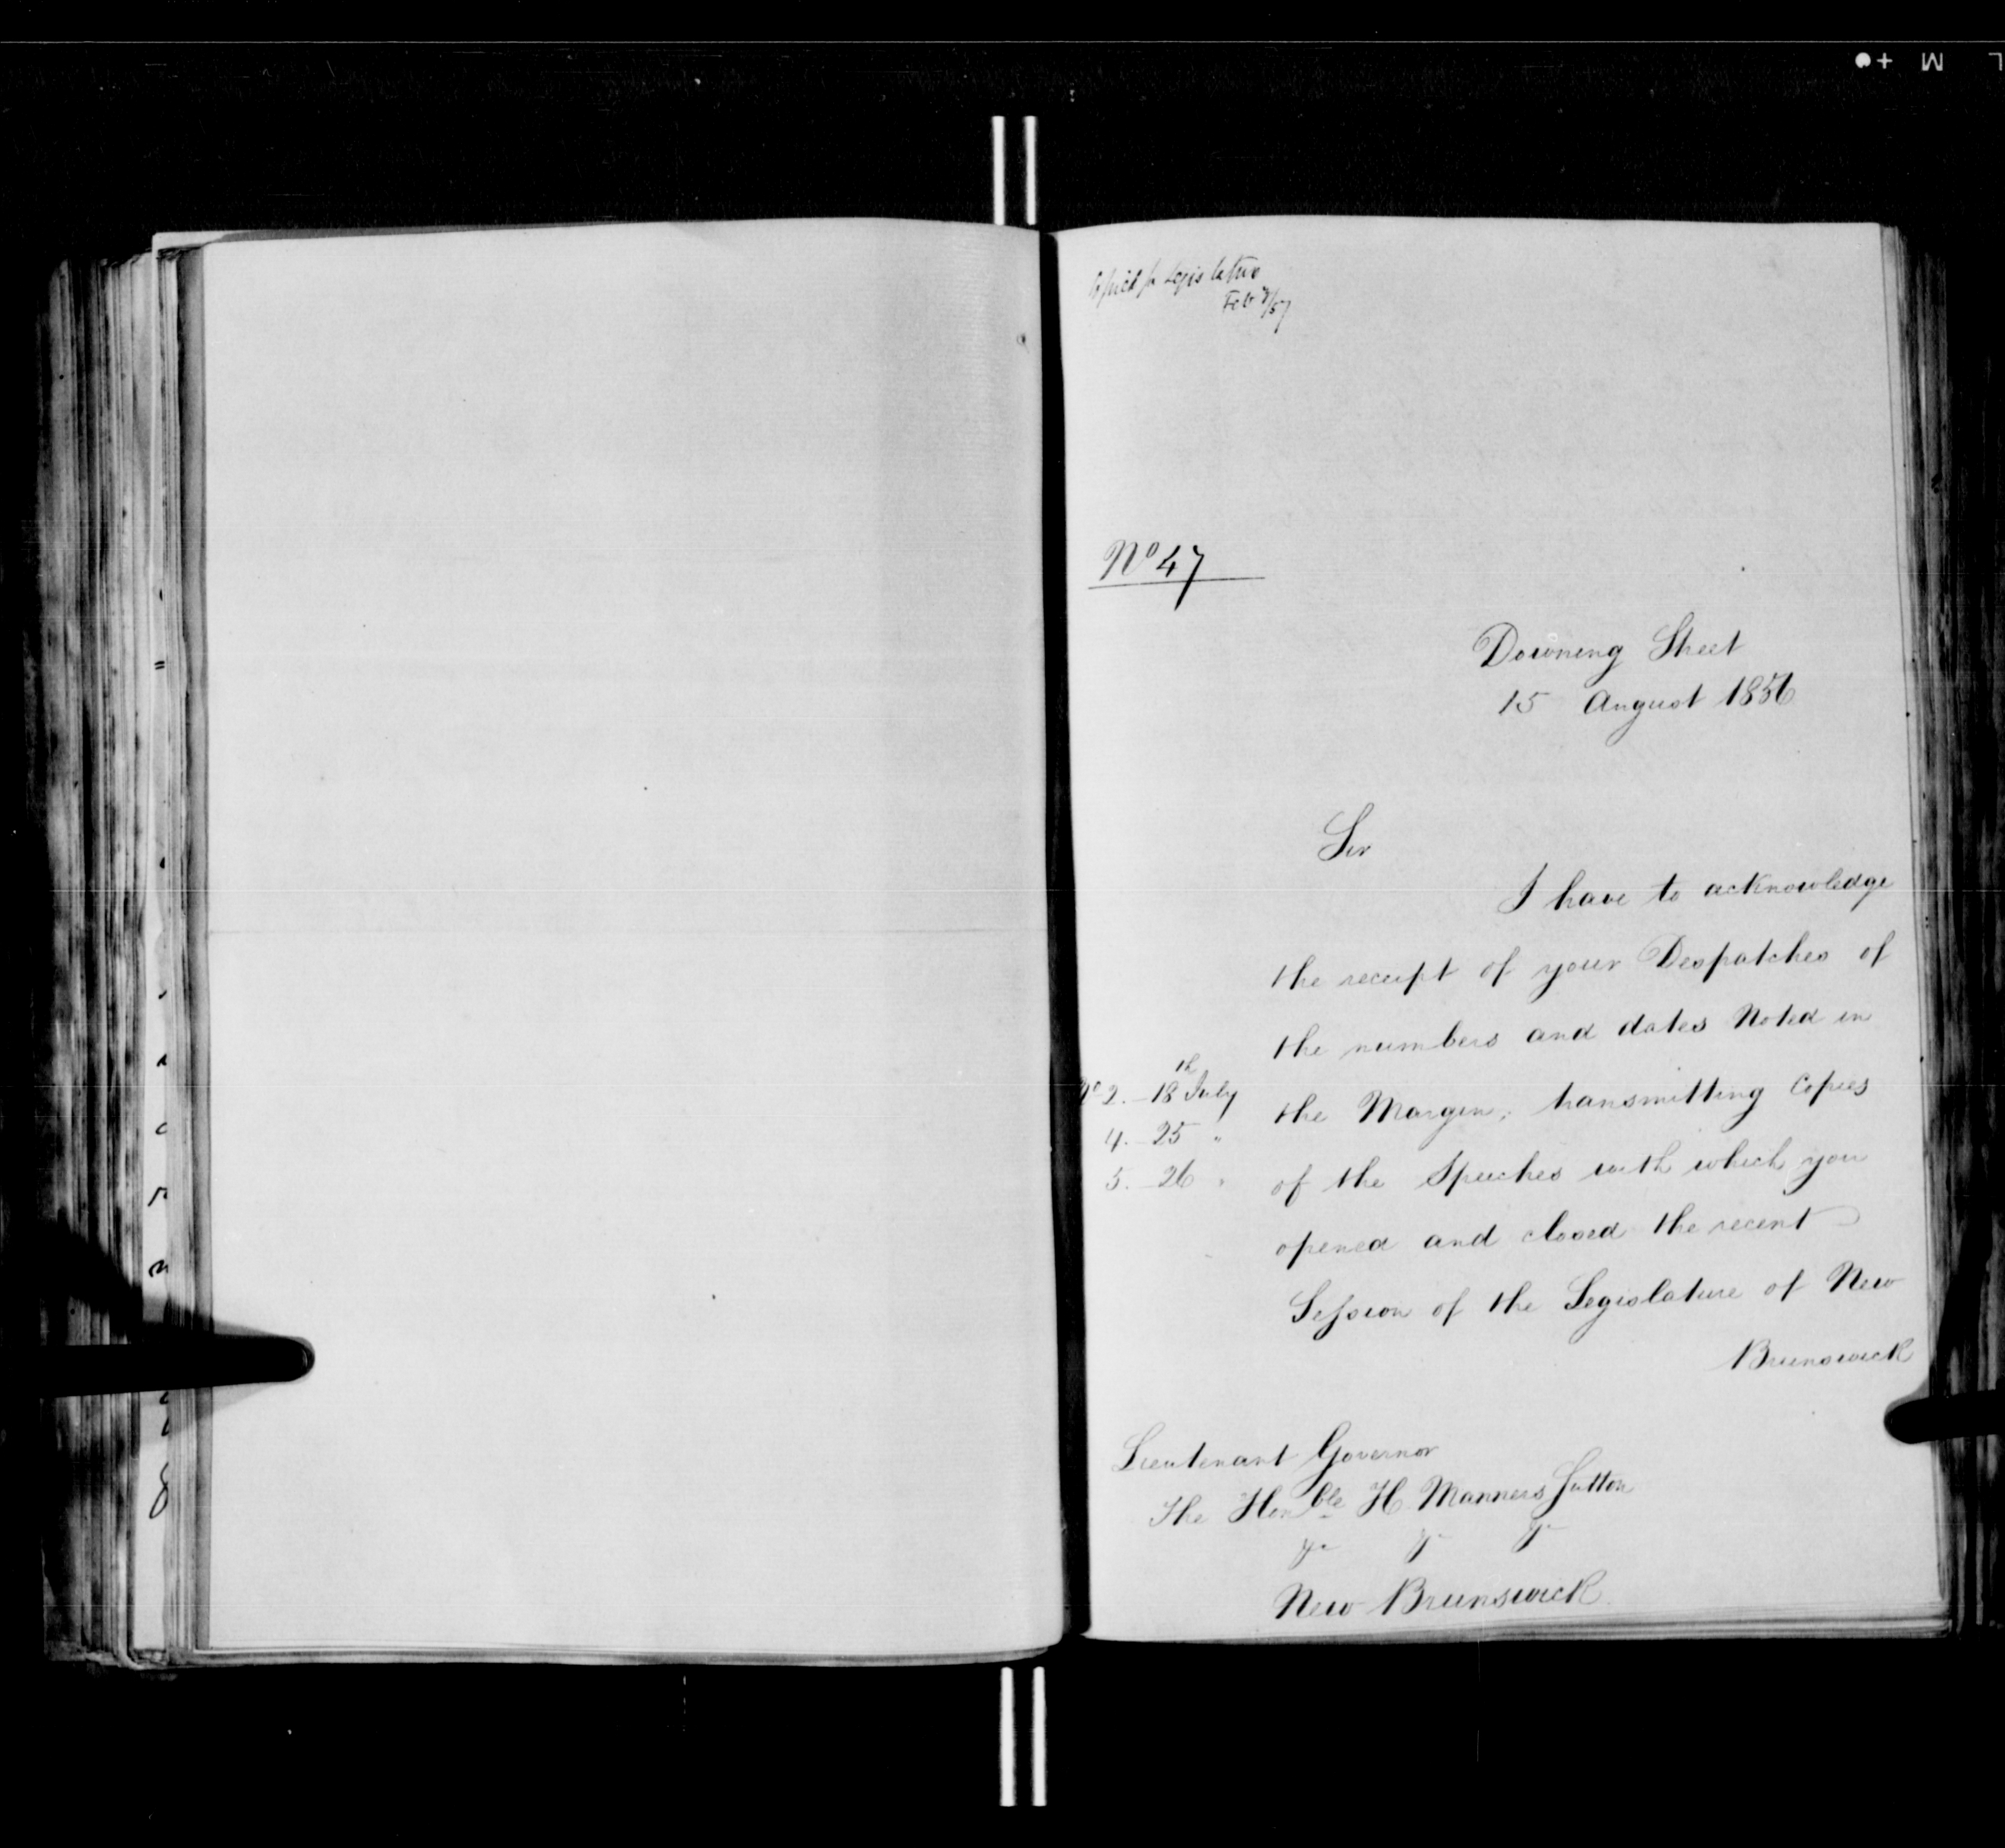 Copied for Legislature
Feb 7/57
No 47
Downing Street
15 August 1856
Sir
I have to acknowledge
the receipt of your Despatches of
the numbers and dates Noted in
the Margin, transmitting Copies
of the Speeches with which you
opened and closed the recent
Session of the Legislature of New
Brunswick
No 2. 18th July
4. 25 "
5. 26 "
Lieutenant Governor
The Honble H. Manners Sutton
&c &c &c
New Brunswick